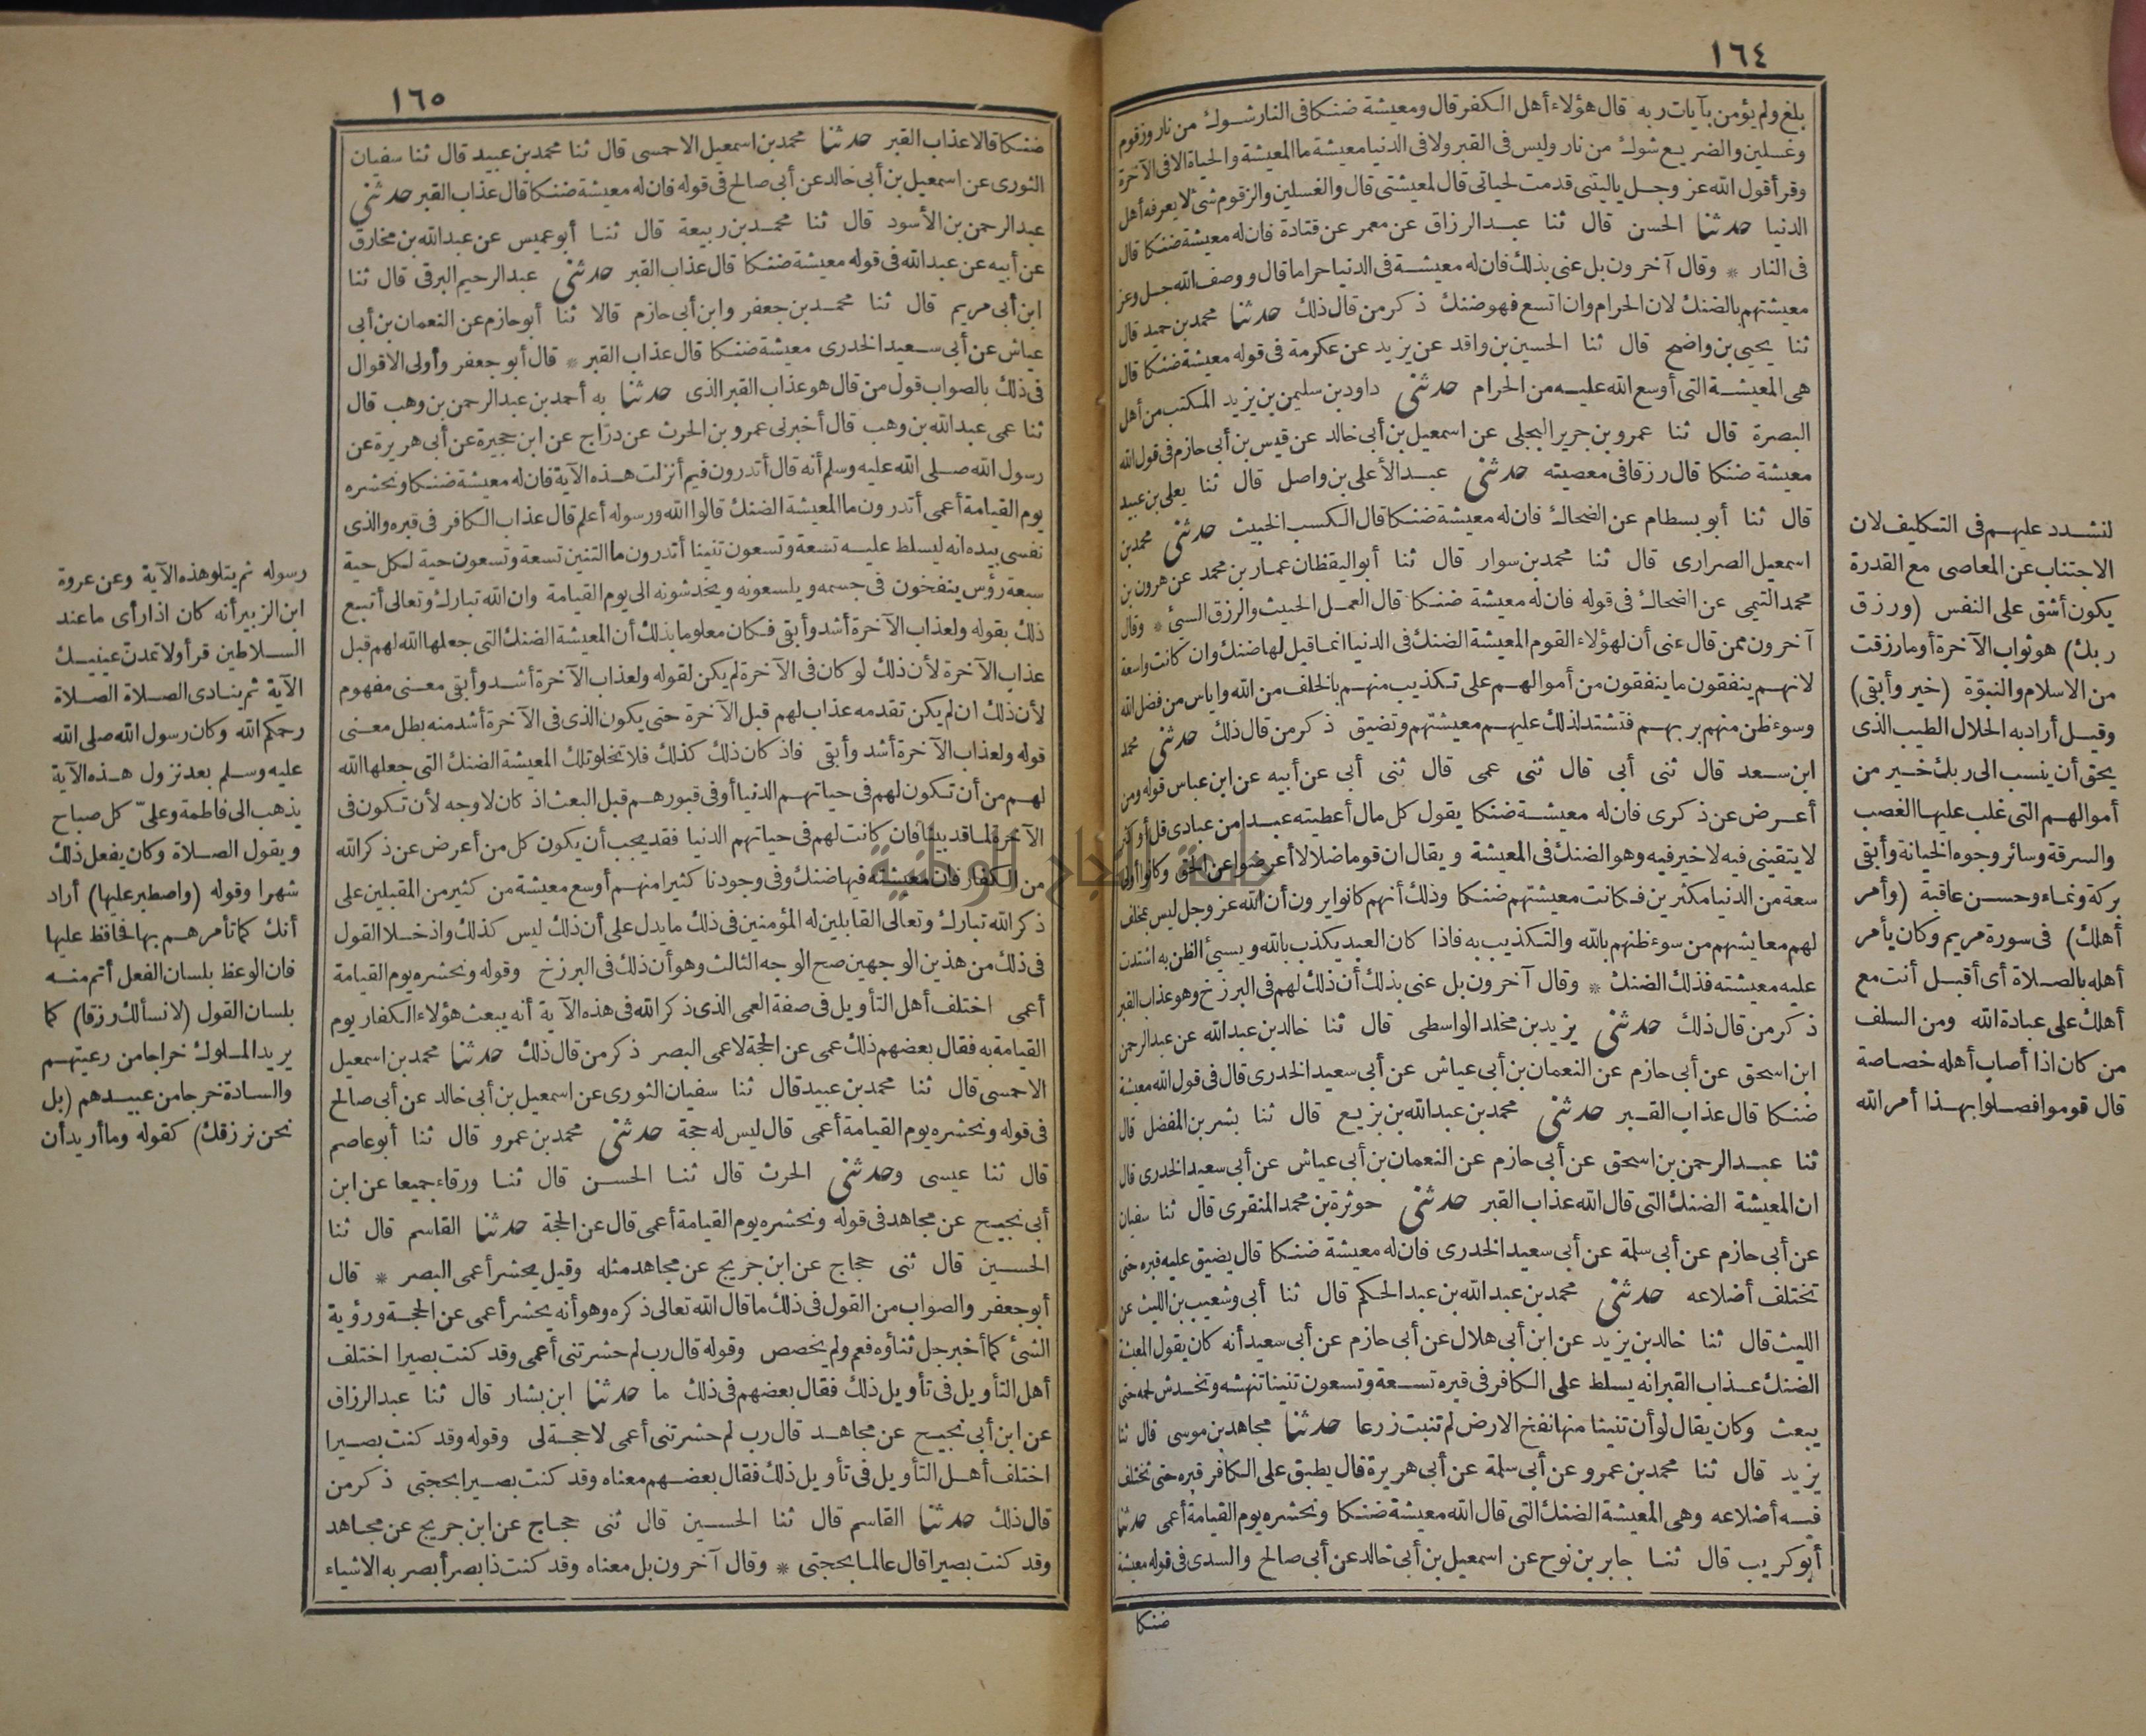 ١٦٤
بلغ ولم يؤمن بآيات ربه قال هؤلاء أهل الكفر قال ومعيشة ضنكا فى النار شوك من نار وزقوم
وغسلين والضريع شوك من نار وليس فى القبر ولا فى الدنيا معيشة ما المعيشة والحياة الا فى الآخرة
وقرأ قول الله عز وجل ياليتنى قدمت لحياتى قال لمعيشتى قال والغسلين والزقوم شئ لا يعرفه أهل
الدنيا حدثنا الحسن قال ثنا عبد الرزاق عن معمر عن قتادة فان له معيشة ضنكا قال
فى النار * وقال آخرون بل عنى بذلك فان له معيشة فى الدنيا حراما قال ووصف الله جل وعز
معيشتهم بالضنك لان الحرام وان اتسع فهو ضنك ذكر من قال ذلك حدثنا محمد بن حميد قال
ثنا يحيى بن واضح قال ثنا الحسين بن واقد عن يزيد عن عكرمة فى قوله معيشة ضنكا قال
هى المعيشة التى أوسع الله عليه من الحرام حدثنى داود بن سليمن بن يزيد المكتب من أهل
البصرة قال ثنا عمرو بن جرير البجلى عن اسمعيل بن أبى خالد عن قيس بن أبى حازم فى قول الله
معيشة ضنكا قال رزقا فى معصيته حدثنى عبد الأعلى بن واصل قال ثنا يعلى بن عبيد
قال ثنا أبو بسطام عن الضحاك فان له معيشة ضنكا قال الكسب الخبيث حدثنى محمد بن
اسمعيل الصرارى قال ثنا محمد بن سوار قال ثنا أبو اليقظان عمار بن محمد عن هرون بن
محمد التيمى عن الضحاك فى قوله فان له معيشة ضنكا قال العمل الخبيث والرزق السيئ * وقال
آخرون ممن قال عنى أن لهؤلاء القوم المعيشة الضنك فى الدنيا انما قيل لها ضنك وان كانت واسعة
لانهم ينفقون ما ينفقون من أموالهم على تكذيب منهم بالخلف من الله واياس من فضل الله
وسوء ظن منهم بربهم فتشتد لذلك عليهم معيشتهم وتضيق ذكر من قال ذلك حدثنى محمد
ابن سعد قال ثنى أبى قال ثنى عمى قال ثنى أبى عن أبيه عن ابن عباس قوله ومن
أعرض عن ذكرى فان له معيشة ضنكا يقول كل مال أعطيته عبدا من عبادى قل أو كثر
لا يتقينى فيه لا خير فيه وهو الضنك فى المعيشة ويقال ان قوما ضلالا أعرضوا عن الحق وكانوا أولى
سعة من الدنيا مكثرين فكانت معيشتهم ضنكا وذلك أنهم كانوا يرون أن الله عز وجل ليس بمخلف
لهم معايشهم من سوء ظنهم بالله والتكذيب به فاذا كان العبد يكذب بالله ويسيئ الظن به اشتدت
عليه معيشته فذلك الضنك * وقال آخرون بل عنى بذلك أن ذلك لهم فى البرزخ وهو عذاب القبر
ذكر من قال ذلك حدثنى يزيد بن مخلد الواسطى قال ثنا خالد بن عبد الله عن عبد الرحمن
ابن اسحق عن أبى حازم عن النعمان بن أبى عياش عن أبى سعيد الخدرى قال فى قول الله معيشة
ضنكا قال عذاب القبر حدثنى محمد بن عبد الله بن بزيع قال ثنا بشر بن المفضل قال
ثنا عبد الرحمن بن اسحق عن أبى حازم عن النعمان بن أبى عياش عن أبى سعيد الخدرى قال
ان المعيشة الضنك التى قال الله عذاب القبر حدثنى حوثرة بن محمد المنقرى قال ثنا سفيان
عن أبى حازم عن أبى سلمة عن أبى سعيد الخدرى فان له معيشة ضنكا قال يضيق عليه قبره حتى
تختلف أضلاعه حدثنى محمد بن عبد الله بن عبد الحكم قال ثنا أبى وشعيب بن الليث عن
الليث قال ثنا خالد بن يزيد عن ابن أبى هلال عن أبى حازم عن أبى سعيد أنه كان يقول المعيشة
الضنك عذاب القبر انه يسلط على الكافر فى قبره تسعة وتسعون تنينا تنهشه وتخدش لحمه حتى
يبعث وكان يقال لو أن تنينا منها نفخ الارض لم تنبت زرعا حدثنا مجاهد بن موسى قال ثنا
يزيد قال ثنا محمد بن عمرو عن أبى سلمة عن أبى هريرة قال يطبق على الكافر قبره حتى تختلف
فيه أضلاعه وهى المعيشة الضنك التى قال الله معيشة ضنكا ونحشره يوم القيامة أعمى حدثنا
أبو كريب قال ثنا جابر بن نوح عن اسمعيل بن أبى خالد عن أبى صالح والسدى فى قوله معيشة
ضنكا
لنشدد عليهم فى التكليف لان
الاجتناب عن المعاصى مع القدرة
يكون أشق على النفس (ورزق
ربك) هو ثواب الآخرة أو ما رزقت
من الاسلام والنبوّة (خير وأبقى)
وقيل أراد به الحلال الطيب الذى
يحق أن ينسب الى ربك خير من
أموالهم التى غلب عليها الغصب
والسرقة وسائر وجوه الخيانة وأبقى
بركة ونماء وحسن عاقبة (وأمر
أهلك) فى سورة مريم وكان يأمر
أهله بالصلاة أى أقبل أنت مع
أهلك على عبادة الله ومن السلف
من كان اذا أصاب أهله خصاصة
قال قوموا فصلوا بهذا أمر الله
١٦٥
ضنكا قالا عذاب القبر حدثنا محمد بن اسمعيل الاحمسى قال ثنا محمد بن عبيد قال ثنا سفيان
الثورى عن اسمعيل بن أبى خالد عن أبى صالح فى قوله فان له معيشة ضنكا قال عذاب القبر حدثنى
عبد الرحمن بن الأسود قال ثنا محمد بن ربيعة قال ثنا أبو عميس عن عبد الله بن مخارق
عن أبيه عن عبد الله فى قوله معيشة ضنكا قال عذاب القبر حدثنى عبد الرحيم البرقى قال ثنا
ابن أبى مريم قال ثنا محمد بن جعفر وابن أبى حازم قالا ثنا أبو حازم عن النعمان بن أبى
عياش عن أبى سعيد الخدرى معيشة ضنكا قال عذاب القبر * قال أبو جعفر وأولى الاقوال
فى ذلك بالصواب قول من قال هو عذاب القبر الذى حدثنا به أحمد بن عبد الرحمن بن وهب قال
ثنا عمى عبد الله بن وهب قال أخبرنى عمرو بن الحرث عن درّاج عن ابن حجيرة عن أبى هريرة عن
رسول الله صلى الله عليه وسلم أنه قال أتدرون فيم أنزلت هذه الآية فان له معيشة ضنكا ونحشره
يوم القيامة أعمى أتدرون ما المعيشة الضنك قالوا الله ورسوله أعلم قال عذاب الكافر فى قبره والذى
نفسى بيده انه ليسلط عليه تسعة وتسعون تنينا أتدرون ما التنين تسعة وتسعون حية لكل حية
سبعة رؤس ينفخون فى جسمه ويلسعونه ويخدشونه الى يوم القيامة وان الله تبارك وتعالى أتبع
ذلك بقوله ولعذاب الآخرة أشد وأبقى فكان معلوما بذلك أن المعيشة الضنك التى جعلها الله لهم قبل
عذاب الآخرة لأن ذلك لو كان فى الآخرة لم يكن لقوله ولعذاب الآخرة أشد وأبقى معنى مفهوم
لأن ذلك ان لم يكن تقدمه عذاب لهم قبل الآخرة حتى يكون الذى فى الآخرة أشد منه بطل معنى
قوله ولعذاب الآخرة أشد وأبقى فاذ كان ذلك كذلك فلا تخلو تلك المعيشة الضنك التى جعلها الله
لهم من أن تكون لهم فى حياتهم الدنيا أو فى قبورهم قبل البعث اذ كان لا وجه لأن تكون فى
الآخرة لما قد بينا فان كانت لهم فى حياتهم الدنيا فقد يجب أن يكون كل من أعرض عن ذكر الله
من الكفار فان معيشته فيها ضنك وفى وجودنا كثيرا منهم أوسع معيشة من كثير من المقبلين على
ذكر الله تبارك وتعالى القابلين له المؤمنين فى ذلك ما يدل على أن ذلك ليس كذلك واذ خلا القول
فى ذلك من هذين الوجهين صح الوجه الثالث وهو أن ذلك فى البرزخ وقوله ونحشره يوم القيامة
أعمى اختلف أهل التأويل فى صفة العمى الذى ذكر الله فى هذه الآية أنه يبعث هؤلاء الكفار يوم
القيامة به فقال بعضهم ذلك عمى عن الحجة لا عمى البصر ذكر من قال ذلك حدثنا محمد بن اسمعيل
الاحمسى قال ثنا محمد بن عبيد قال ثنا سفيان الثورى عن اسمعيل بن أبى خالد عن أبى صالح
فى قوله ونحشره يوم القيامة أعمى قال ليس له حجة حدثنى محمد بن عمرو قال ثنا أبو عاصم
قال ثنا عيسى وحدثنى الحرث قال ثنا الحسن قال ثنا ورقاء جميعا عن ابن
أبى نجيح عن مجاهد فى قوله ونحشره يوم القيامة أعمى قال عن الحجة حدثنا القاسم قال ثنا
الحسين قال ثنى حجاج عن ابن جريج عن مجاهد مثله وقيل يحشر أعمى البصر * قال
أبو جعفر والصواب من القول فى ذلك ما قال الله تعالى ذكره وهو أنه يحشر أعمى عن الحجة ورؤية
الشئ كما أخبر جل ثناؤه فعم ولم يخصص وقوله قال رب لم حشرتنى أعمى وقد كنت بصيرا اختلف
أهل التأويل فى تأويل ذلك فقال بعضهم فى ذلك ما حدثنا ابن بشار قال ثنا عبد الرزاق
عن ابن أبى نجيح عن مجاهد قال رب لم حشرتنى أعمى لا حجة لى وقوله وقد كنت بصيرا
اختلف أهل التأويل فى تأويل ذلك فقال بعضهم معناه وقد كنت بصيرا بحجتى ذكر من
قال ذلك حدثنا القاسم قال ثنا الحسين قال ثنى حجاج عن ابن جريج عن مجاهد
وقد كنت بصيرا قال عالما بحجتى * وقال آخرون بل معناه وقد كنت ذا بصر أبصر به الاشياء
رسوله ثم يتلو هذه الآية وعن عروة
ابن الزبير أنه كان اذا رأى ما عند
السلاطين قرأ ولا تمدنّ عينيك
الآية ثم ينادى الصلاة الصلاة
رحمكم الله وكان رسول الله صلى الله
عليه وسلم بعد نزول هذه الآية
يذهب الى فاطمة وعلىّ كل صباح
ويقول الصلاة وكان يفعل ذلك
شهرا وقوله (واصطبر عليها) أراد
أنك كما تأمرهم بها فحافظ عليها
فان الوعظ بلسان الفعل أتم منه
بلسان القول (لا نسألك رزقا) كما
يريد الملوك خراجا من رعيتهم
والسادة خرجا من عبيدهم (بل
نحن نرزقك) كقوله وما أريد أن